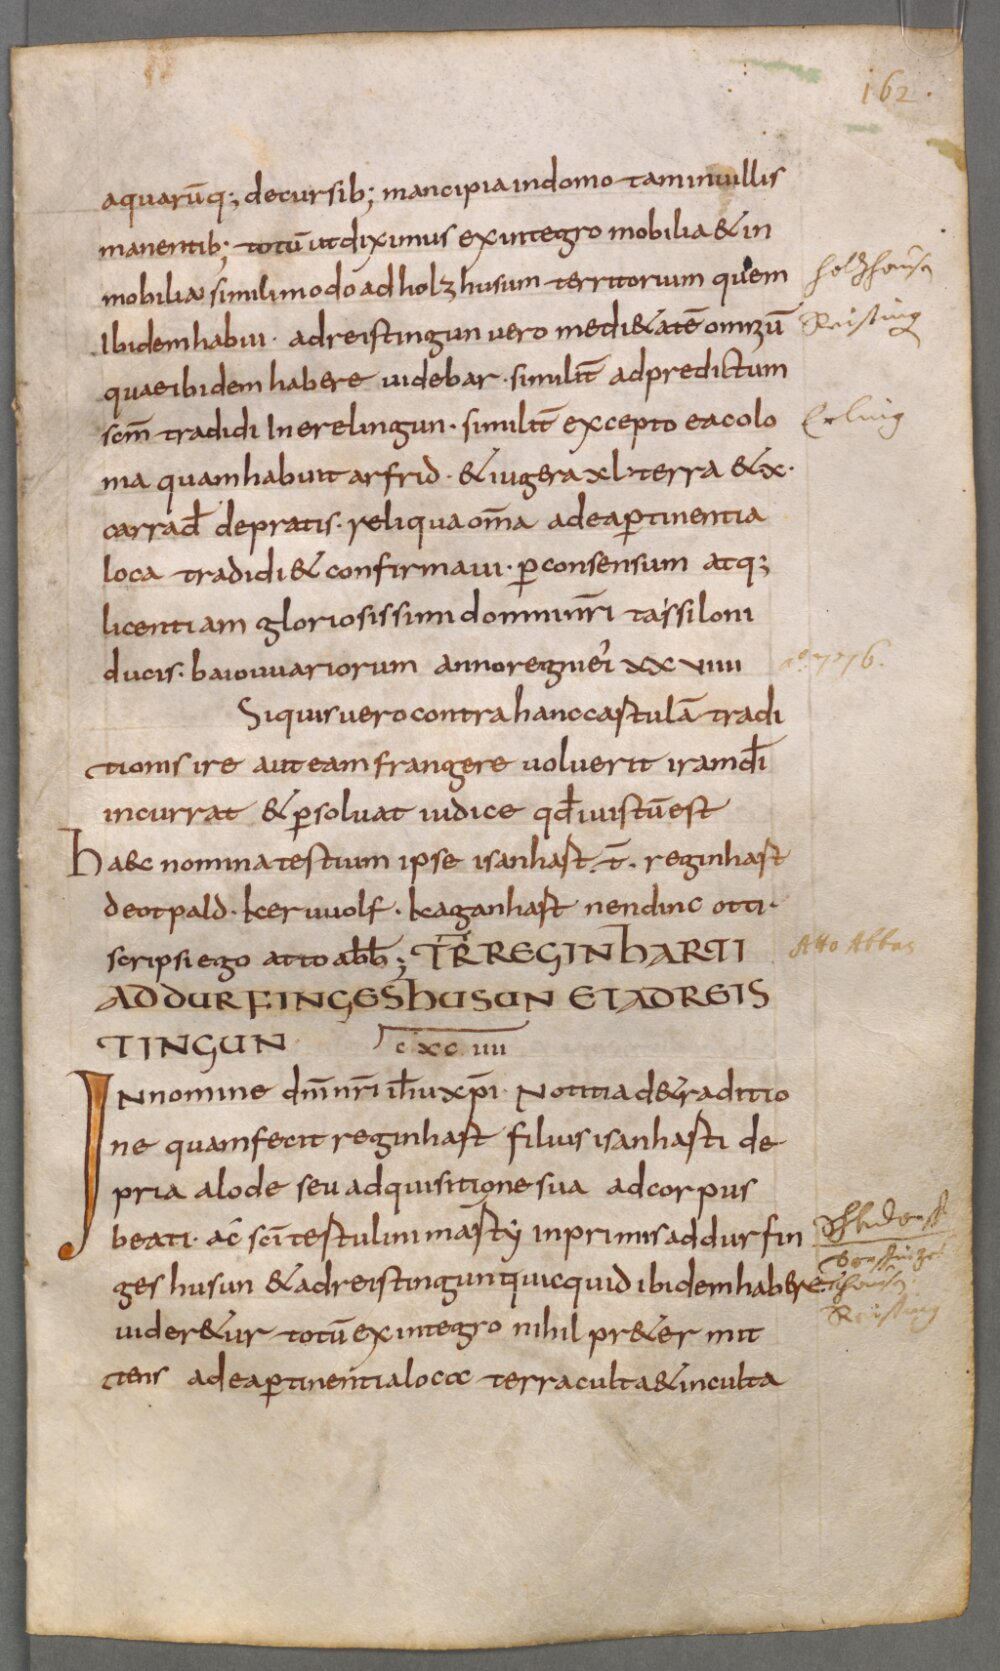 162.
aquarūq; decursib; mancipia indomo taminuillis
manentib; totū utdiximus exintegro mobilia & in
mobilia similimodo adholzhusum territorium quem
holzhausen
Ibidemhabui · adreistingun vero medi&atē omnzū
Reisting
quaeibidem habere uidebar · similit̄ adpredictum
scm̄ tradidi Inerelingun · similit̄ excepto eacolo
Erling
nia quamhabuit arfrid · & iugera xl · terra & x ·
carrad̄ depratis · reliqua om̄a adeap̄tinentia
loca tradidi & confirmaui · p̄consensum atq;
licentiam gloriosissimi domninr̄i tassiloni
ducis · baiouuariorum anno regnieī xxviiii
a° 776.
Siquisvero contra hanc castulā tradi
tionis ire aut eam frangere uoluerit iramdī
incurrat & p̄soluat iudice qd̄ iuistū est
haec nomina testium ipse isanhast · t̄ · reginhast
deotpald · keruuolf · kaganhast nendinc otti ·
scripsi ego atto abb̄; TR̄ REGINhARTI
Atto Abbas
AD DURFINGESHUSUN ET AD REIS
TINGUN cxciiii
IN nomine dn̄i nr̄i ih̄u xp̄i · Notitia de traditio
ne quamfecit reginhast filius isanhasti de
pria alode seu adquisitione sua adcorpus
beati · ac̄ scī testulini mar̄tẏ inprimis addurfin
geshusun & adreistingun quicquid ibidem habere
Reisting
uider&ur totū exintegro nihil pr&er mit
tens adeap̄tinentialoca terra culta & inculta